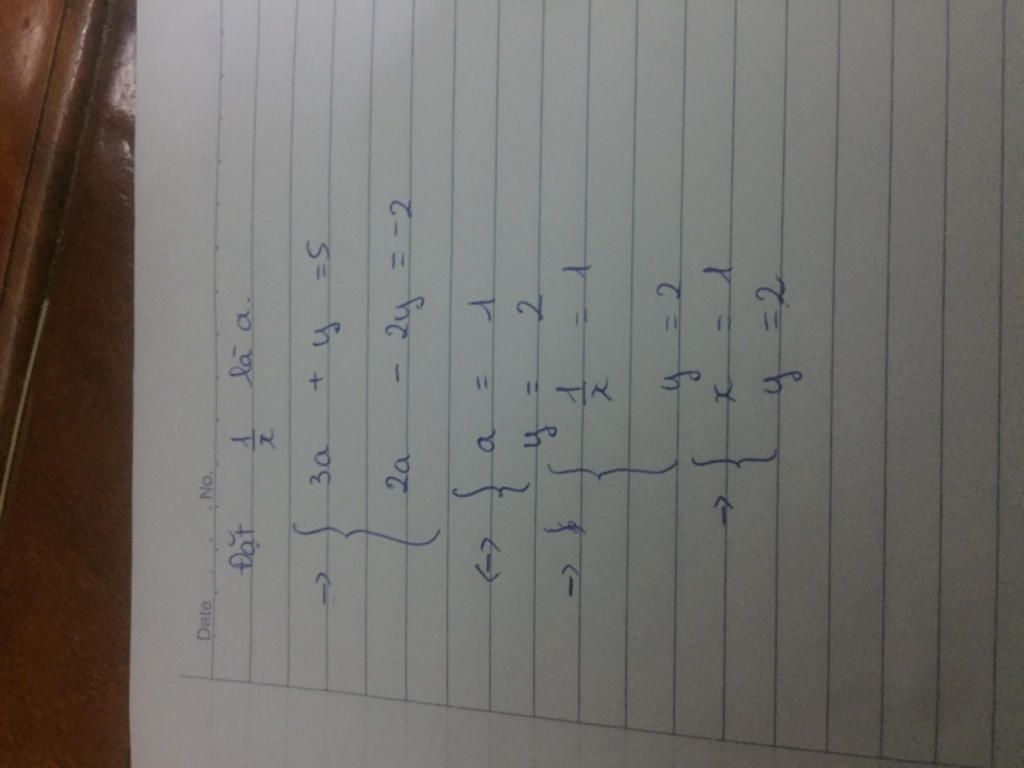 Date . No.
Đặt 1/x là a.
→ { 3a + y = 5
2a - 2y = -2
<-> { a = 1
y = 2
→ { 1/x = 1
y = 2
→ { x = 1
y = 2